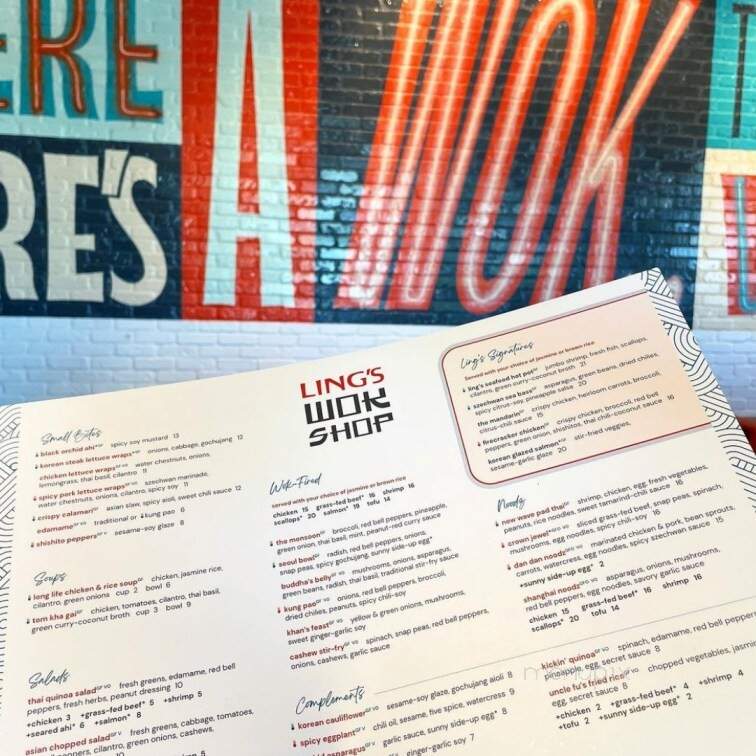 ERE
A WOK,
T
RE'S
LING'S
WOK
SHOP
Small Bites
black orchid ahi*GF spicy soy mustard 13
korean steak lettuce wraps*GF onions, cabbage, gochujang 12
chicken lettuce wrapsGF VO water chestnuts, onions,
lemongrass, thai basil, cilantro 11
spicy pork lettuce wrapsGF VO szechwan marinade,
water chestnuts, onions, cilantro, spicy soy 11
crispy calamariGF asian slaw, spicy aioli, sweet chili sauce 12
edamameGF VO traditional or kung pao 6
shishito peppersGF V sesame-soy glaze 8
Soups
long life chicken & rice soupGF chicken, jasmine rice,
cilantro, green onions cup 2 bowl 6
tom kha gaiGF chicken, tomatoes, cilantro, thai basil,
green curry-coconut broth cup 3 bowl 9
Salads
thai quinoa saladGF VO fresh greens, edamame, red bell
peppers, fresh herbs, peanut dressing 10
+chicken 3 +grass-fed beef* 5 +shrimp 5
+seared ahi* 6 +salmon* 8
asian chopped saladGF VO fresh greens, cabbage, tomatoes,
cilantro, green onions, cashews,
Wok-Fired
served with your choice of jasmine or brown rice
chicken 15 grass-fed beef* 16 shrimp 16
scallops* 20 salmon* 19 tofu 14
the monsoonGF broccoli, red bell peppers, pineapple,
green onion, thai basil, mint, peanut-red curry sauce
seoul bowlGF radish, red bell peppers, onions,
snap peas, spicy gochujang, sunny side-up egg*
buddha's bellyGF VO mushrooms, onions, asparagus,
green beans, radish, thai basil, traditional stir-fry sauce
kung paoGF VO onions, red bell peppers, broccoli,
dried chilies, peanuts, spicy chili-soy
khan's feastGF VO yellow & green onions, mushrooms,
sweet ginger-garlic soy
cashew stir-fryGF VO spinach, snap peas, red bell peppers,
onions, cashews, garlic sauce
Complements
korean cauliflowerGF V sesame-soy glaze, gochujang aioli 8
spicy eggplantGF V chili oil, sesame, five spice, watercress 9
asparagusGF V garlic sauce, sunny side-up egg* 8
ginger-garlic soy 7
Ling's Signatures
Served with your choice of jasmine or brown rice
ling's seafood hot potGF jumbo shrimp, fresh fish, scallops,
cilantro, green curry-coconut broth 21
szechwan sea bassGF asparagus, green beans, dried chilies,
spicy citrus-soy, pineapple salsa 20
the mandarinGF crispy chicken, heirloom carrots, broccoli,
citrus-chili sauce 15
firecracker chickenGF crispy chicken, broccoli, red bell
peppers, green onion, shishitos, thai chili-coconut sauce 16
korean glazed salmon*GF stir-fried veggies,
sesame-garlic glaze 20
Noodz
new wave pad thaiGF shrimp, chicken, egg, fresh vegetables,
peanuts, rice noodles, sweet tamarind-chili sauce 16
crown jewel*GFO VO sliced grass-fed beef, snap peas, spinach,
mushrooms, egg noodles, spicy chili-soy 16
dan dan noodzGFO VO marinated chicken & pork, bean sprouts,
carrots, watercress, egg noodles, spicy szechwan sauce 15
+sunny side-up egg* 2
shanghai noodzGFO VO asparagus, onions, mushrooms,
red bell peppers, egg noodles, savory garlic sauce
chicken 15 grass-fed beef* 16 shrimp 16
scallops* 20 tofu 14
kickin' quinoaGF VO spinach, edamame, red bell peppers,
pineapple, egg, secret sauce 8
uncle fu's fried riceGF VO chopped vegetables, jasmine
egg, secret sauce 8
+chicken 2 +grass-fed beef* 4 +shrimp 4
+tofu 2 +sunny side-up egg* 2